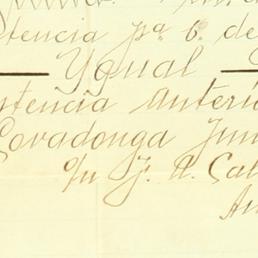 stencia pª 6. de
Ygual
stencia anteri
Covadonga Jun
o/n J. A. Cal